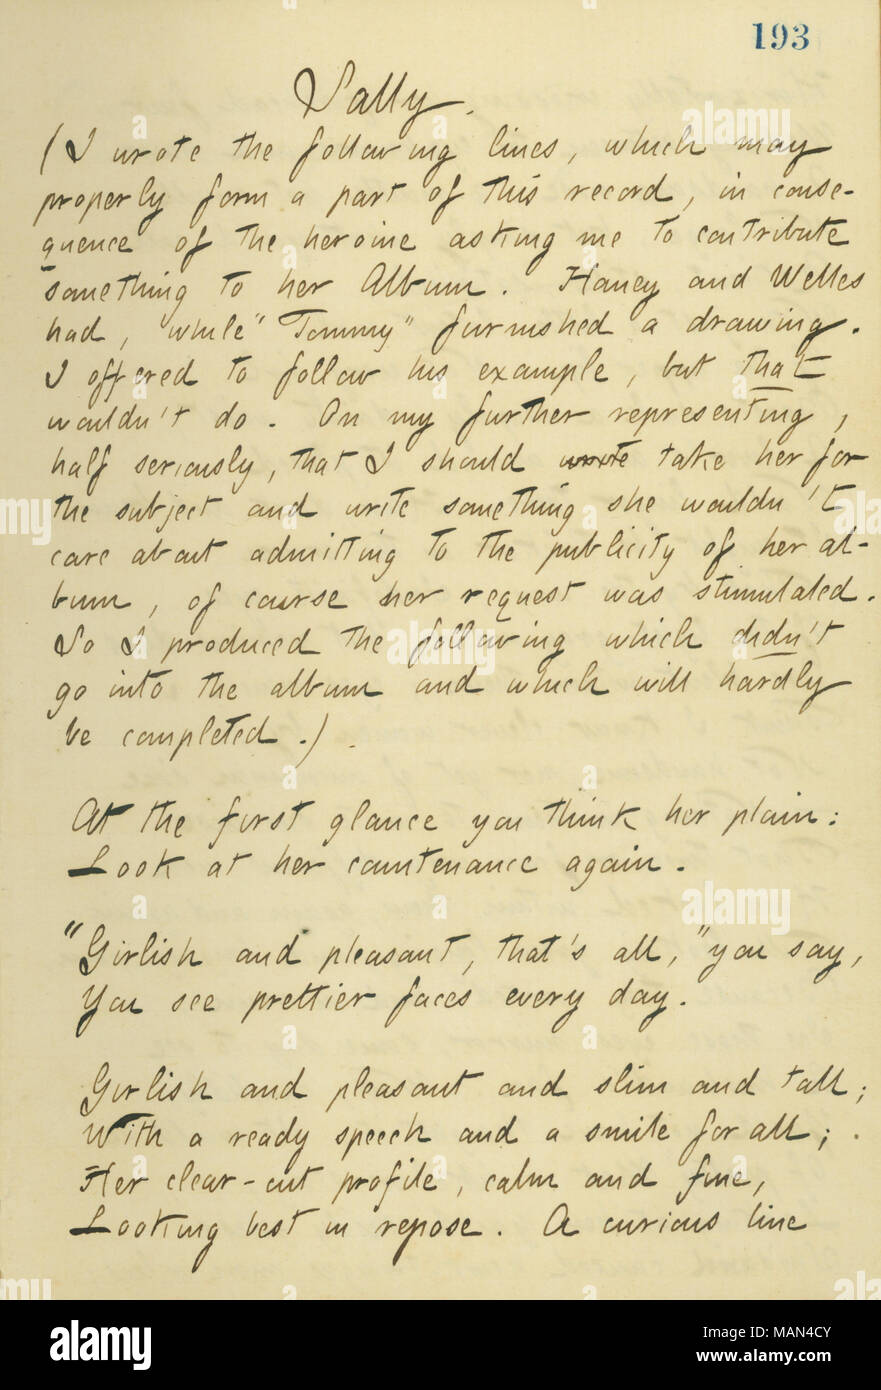 193
Sally.
(I wrote the following lines, which may
properly form a part of this record, in conse-
quence of the heroine asking me to contribute
something to her Album. Haney and Welles
had, while "Tommy" furnished a drawing.
I offered to follow his example, but that
wouldn't do. On my further representing,
half seriously, that I should wrote take her for
the subject and write something she wouldn't
care about admitting to the publicity of her al-
bum, of course her request was stimulated.
So I produced the following which didn't
go into the album and which will hardly
be completed.)
At the first glance you think her plain:
Look at her countenance again.
"Girlish and pleasant, that's all," you say,
You see prettier faces every day.
Girlish and pleasant and slim and tall;
With a ready speech and a smile for all;
Her clear-cut profile, calm and fine,
Looking best in repose. A curious line
alamy
Image ID: MAN4CY
www.alamy.com